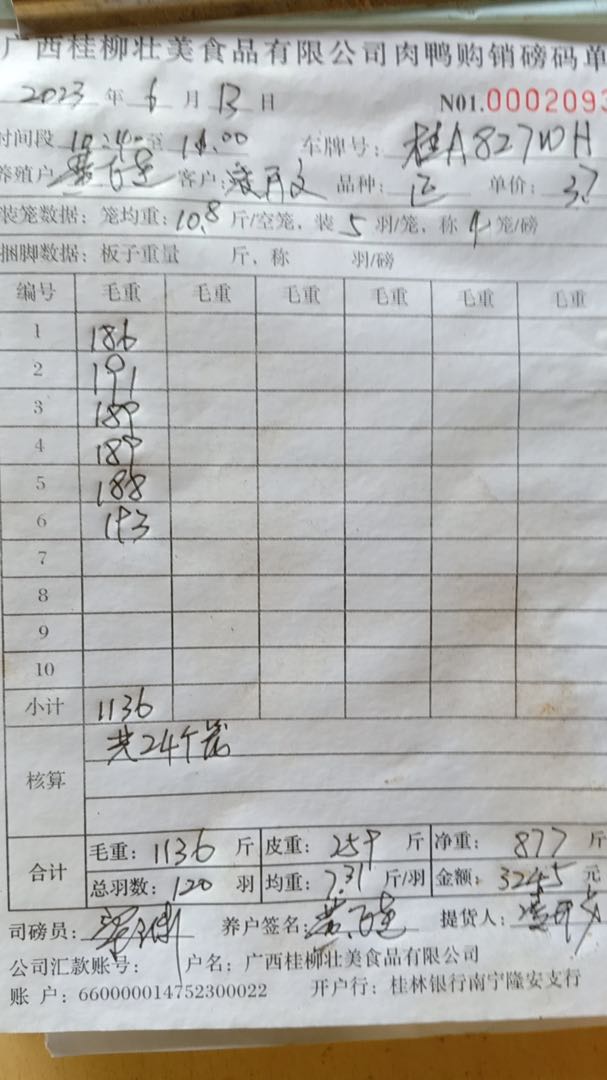 广西桂柳壮美食品有限公司肉鸭购销磅码单
2023 年 6 月 13 日 N01.0002093
时间段 10:40 至 11.00 车牌号: 桂A827WH
养殖户 客户: 品种: 正 单价: 3.7
装笼数据: 笼均重: 10.8 斤/空笼, 装 5 羽/笼, 称 4 笼/磅
捆脚数据: 板子重量 斤, 称 羽/磅
编号 毛重 毛重 毛重 毛重 毛重 毛重
1 186
2 191
3 189
4 189
5 188
6 193
7
8
9
10
小计 1136
核算 共24个笼
合计 毛重: 1136 斤 皮重: 259 斤 净重: 877 斤
总羽数: 120 羽 均重: 7.31 斤/羽 金额: 3245 元
司磅员: 养户签名: 提货人:
公司汇款账号: 户名: 广西桂柳壮美食品有限公司
账 户: 660000014752300022 开户行: 桂林银行南宁隆安支行